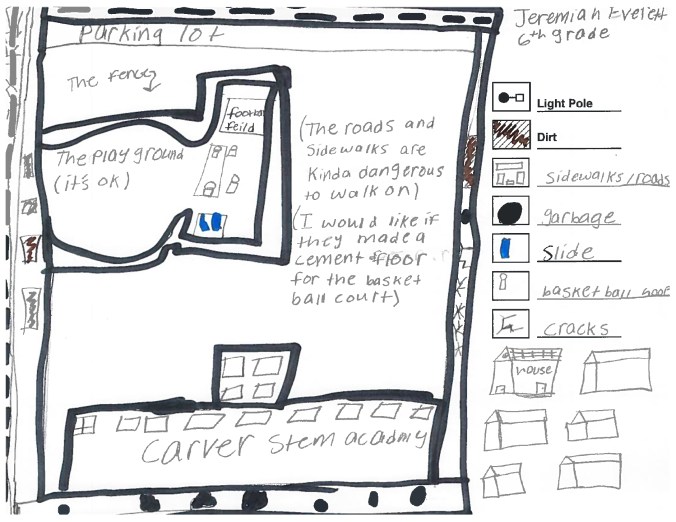 Jeremiah Evelett
6th grade
Parking lot
The fence
football
feild
The playground
(it's ok)
(The roads and
Sidewalks are
Kinda dangerous
to walk on)
(I would like if
they made a
cement floor
for the basket
ball court)
Light Pole
Dirt
Sidewalks/roads
garbage
Slide
basketball hoop
cracks
House
Carver Stem academy